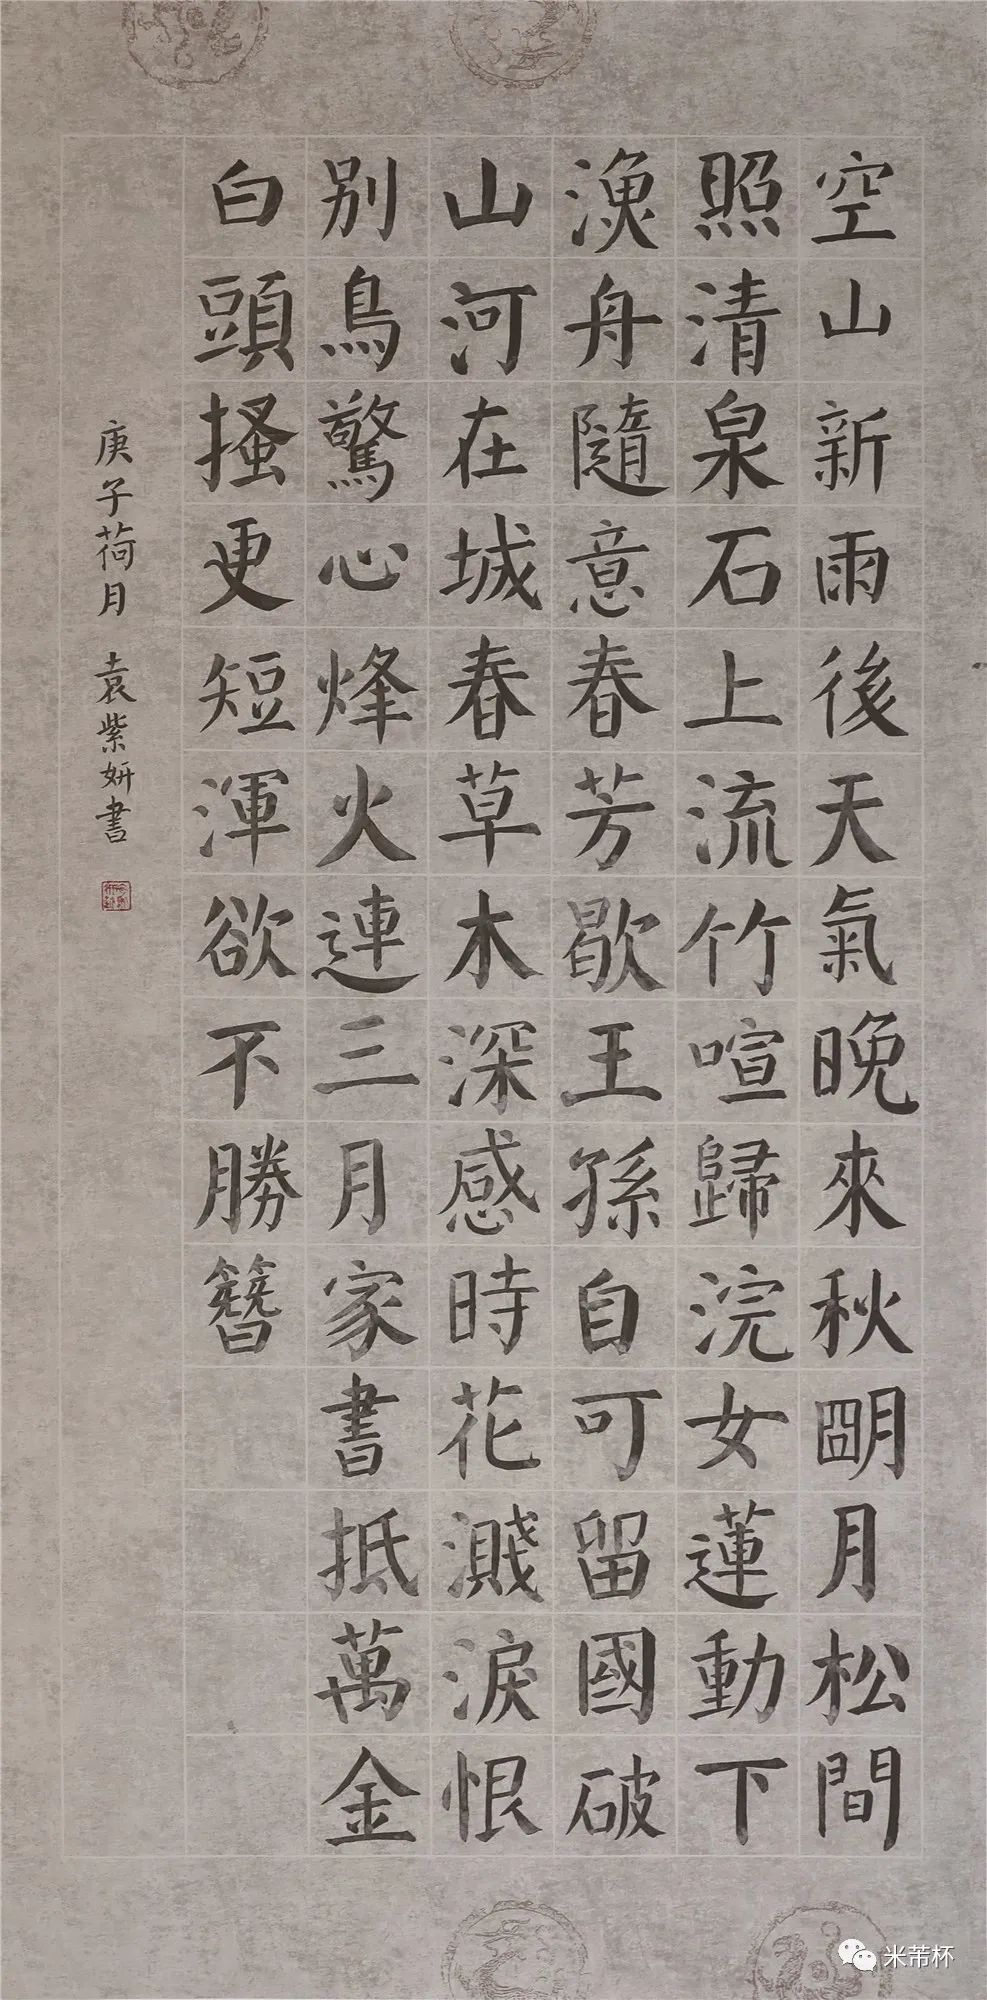 空山新雨後天氣晚來秋朙月松間
照清泉石上流竹喧歸浣女蓮動下
漁舟隨意春芳歇王孫自可留國破
山河在城春草木深感時花濺淚恨
別鳥驚心烽火連三月家書抵萬金
白頭搔更短渾欲不勝簪
庚子荷月 袁紫妍書
米芾杯